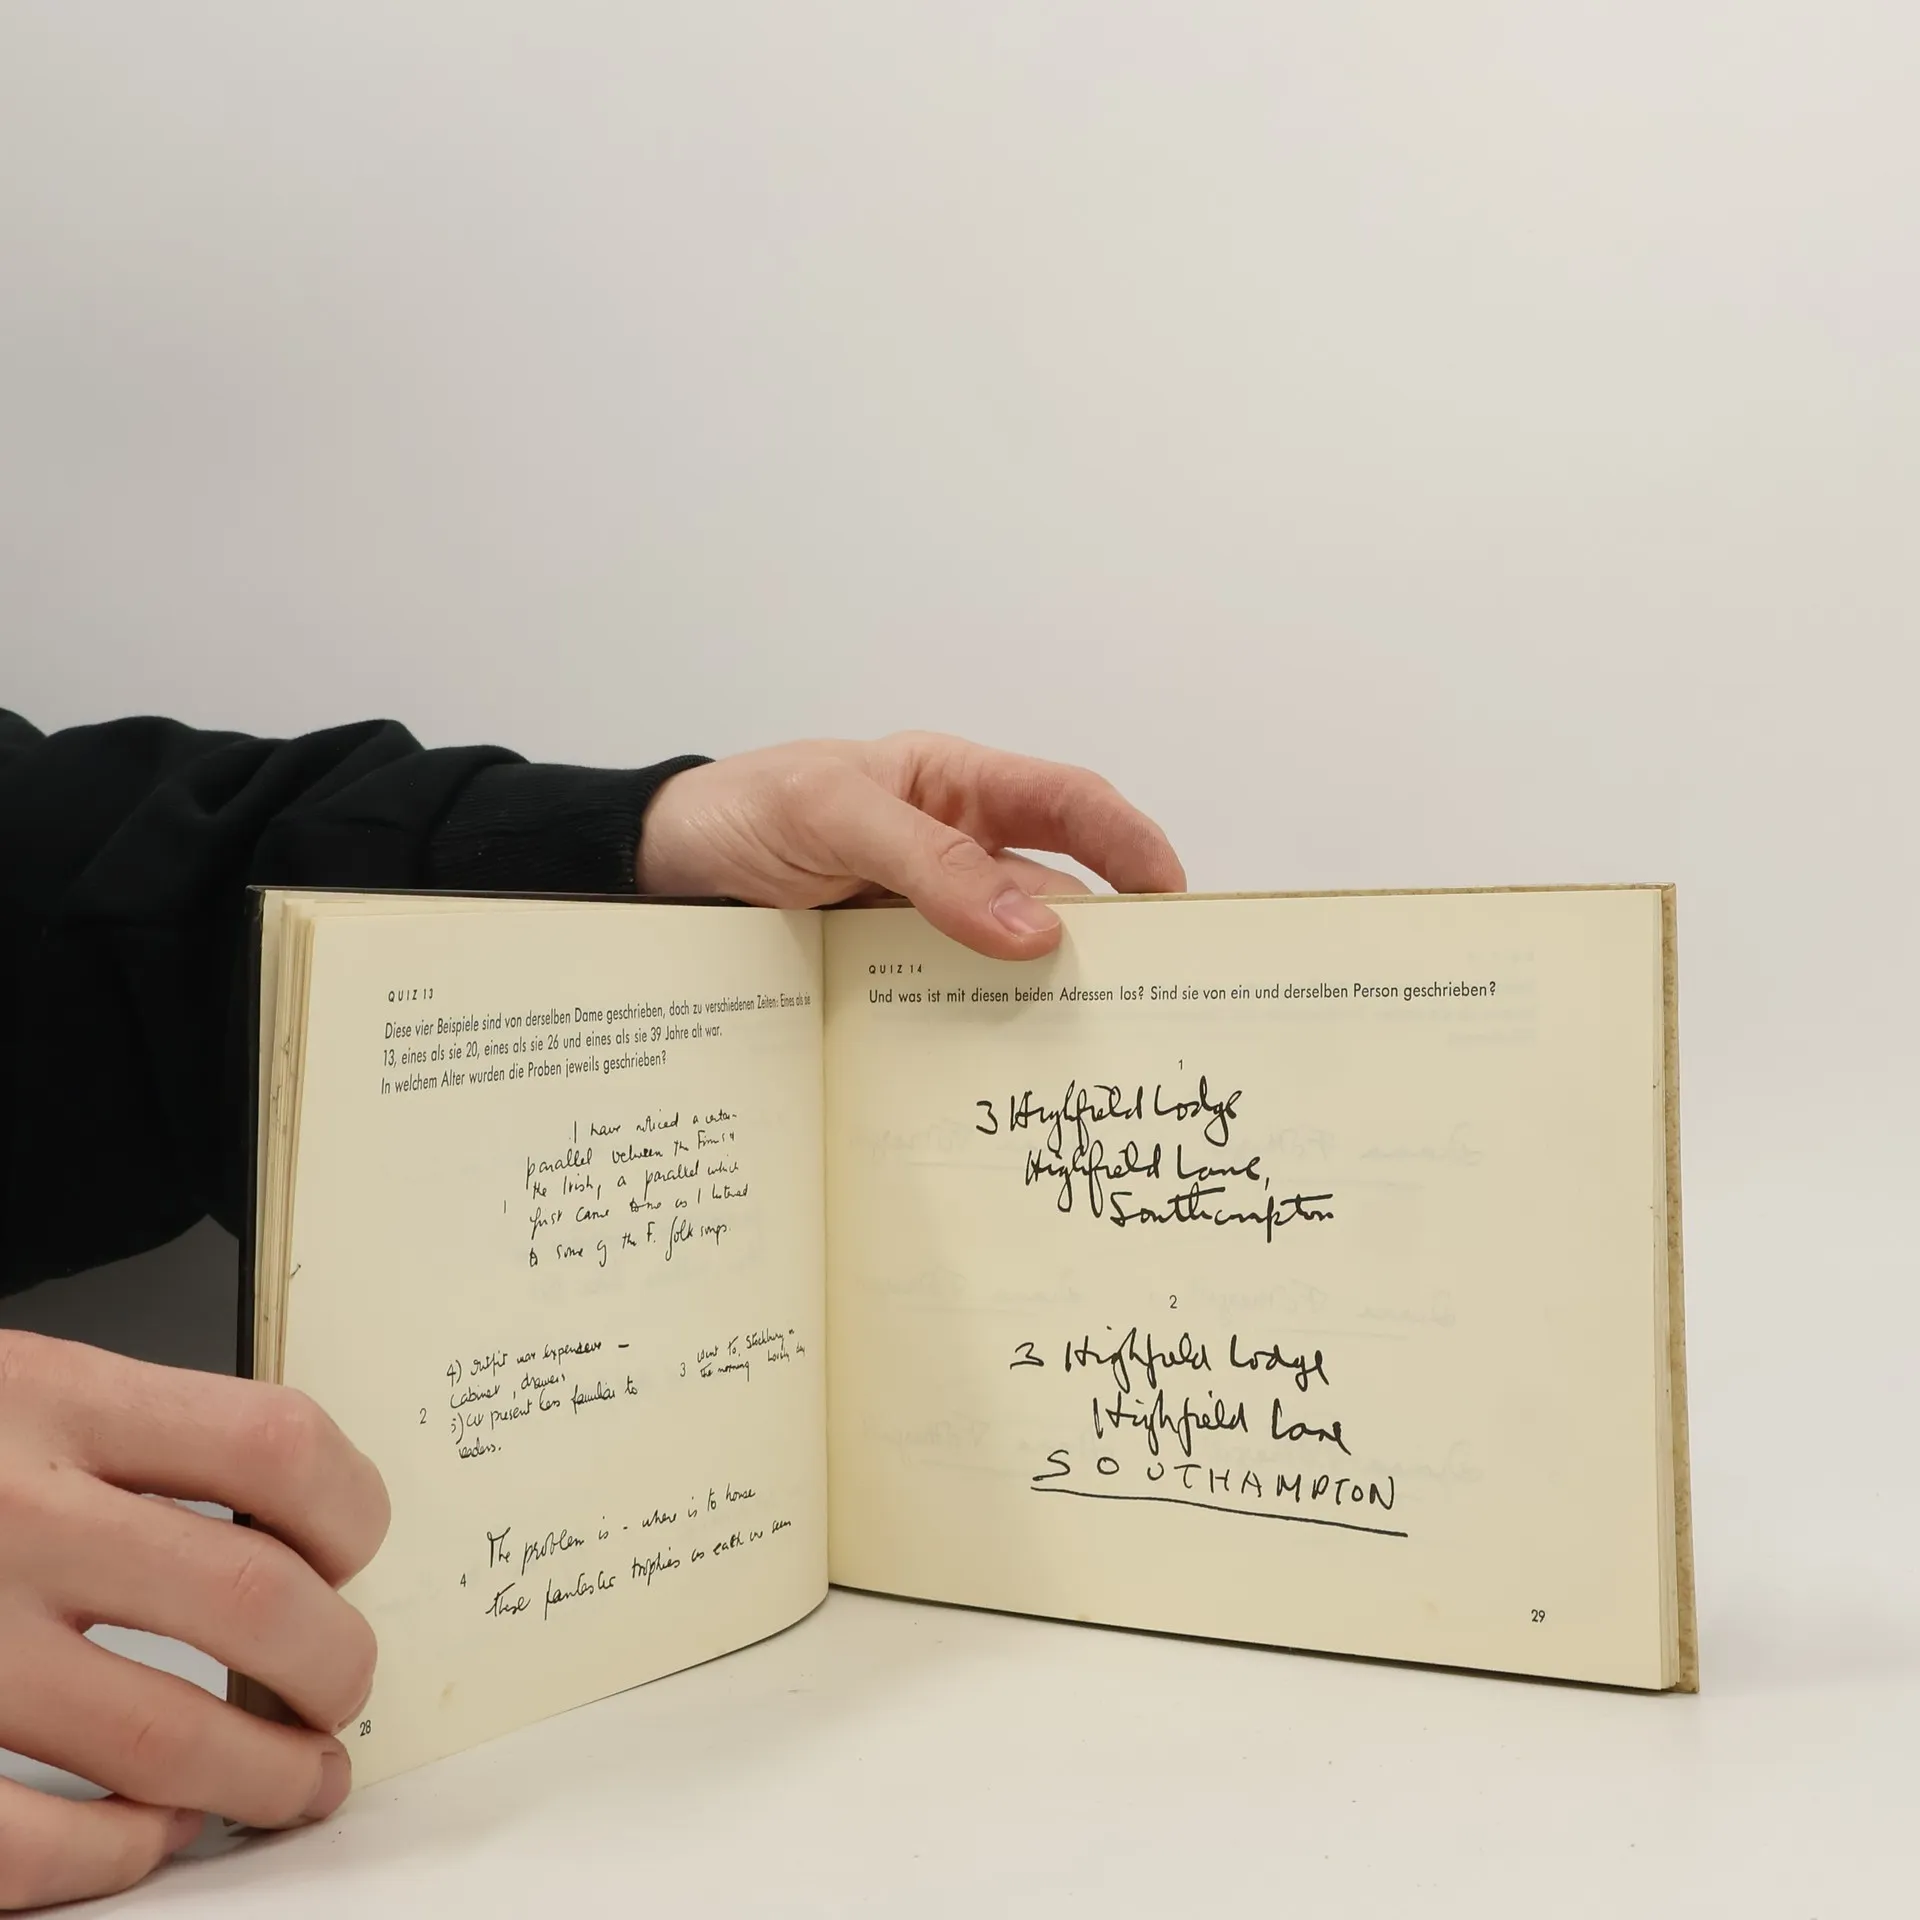 QUIZ 13
Diese vier Beispiele sind von derselben Dame geschrieben, doch zu verschiedenen Zeiten: Eines als sie
13, eines als sie 20, eines als sie 26 und eines als sie 39 Jahre alt war.
In welchem Alter wurden die Proben jeweils geschrieben?
I have noticed a
parallel between the Finns &
the Irish, a parallel which
1
just came to me as I listened
to some of the F. folk songs.
4) outfit was expensive –
cabinet, drawers
2
5) at present less familiar to
readers.
3
Went to Stockbury in
the morning lovely day
The problem is - where is to house
4
these fantastic trophies as each we seem
28
QUIZ 14
Und was ist mit diesen beiden Adressen los? Sind sie von ein und derselben Person geschrieben?
1
3 Highfield Lodge
Highfield Lane,
Southampton
2
3 Highfield Lodge
Highfield Lane
SOUTHAMPTON
29